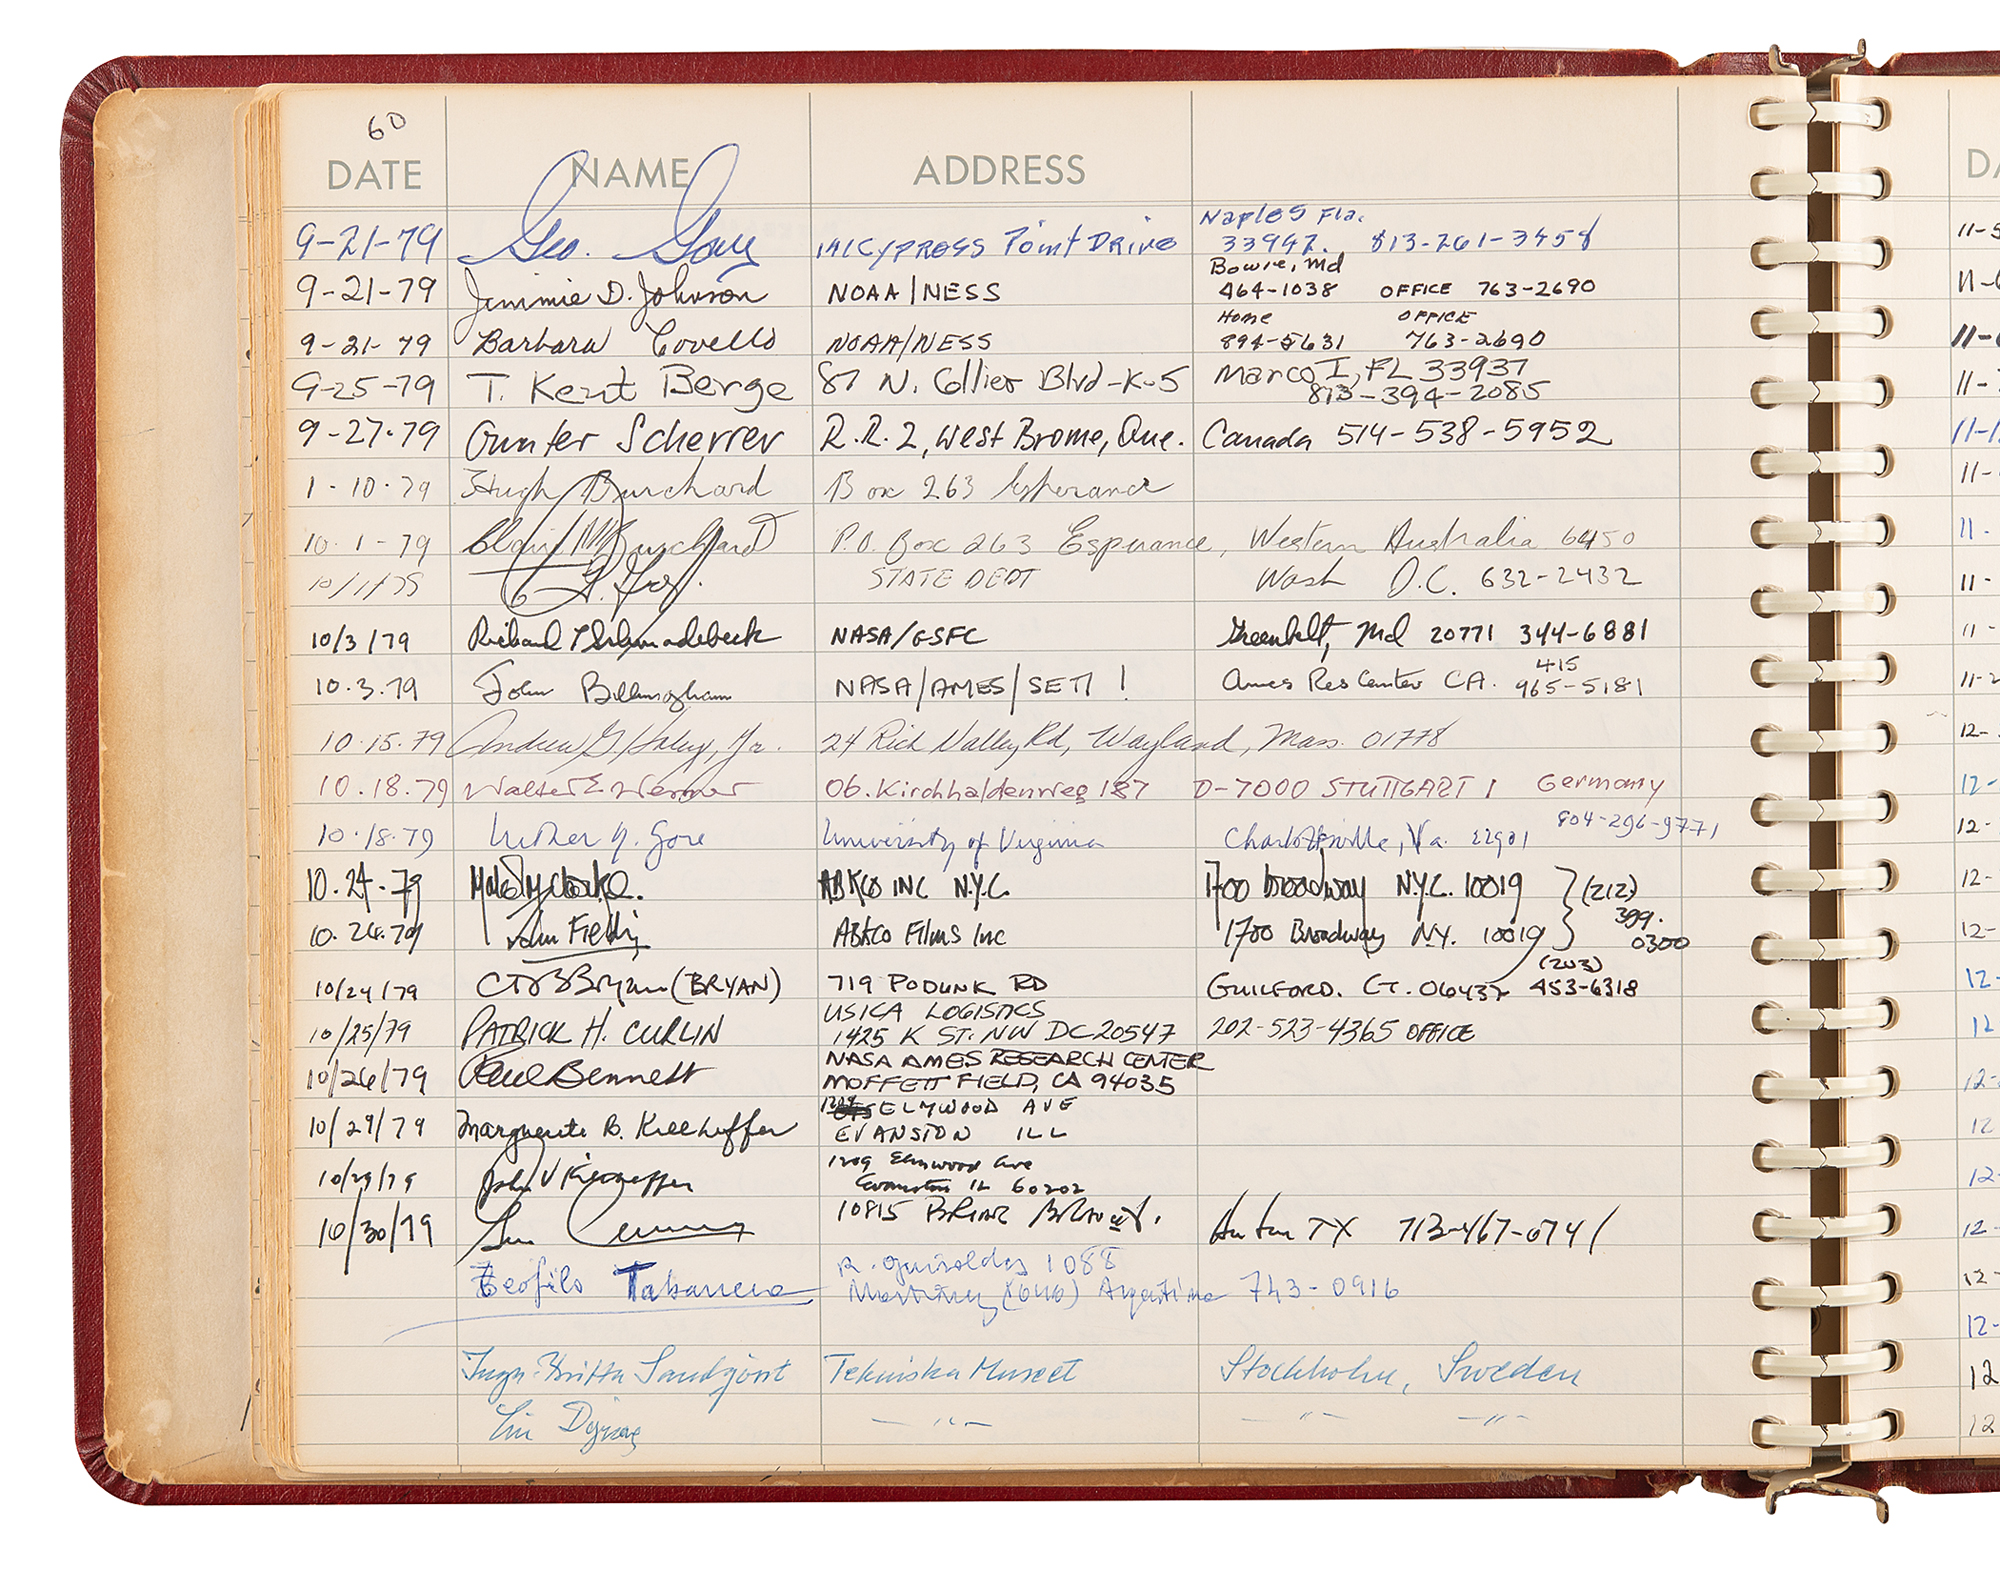 60
DATE NAME ADDRESS
Naples Fla.
9-21-79 Geo. Gay 141 Cypress Point Drive 33942. 813-261-3458
Bowie, Md
9-21-79 Jimmie D. Johnson NOAA/NESS 464-1038 OFFICE 763-2690
Home OFFICE
9-21-79 Barbara Covello NOAA/NESS 894-5631 763-2690
9-25-79 T. Kent Berge 87 N. Collier Blvd-K-5 Marco I, FL 33937
813-394-2085
9-27-79 Gunter Scherrer R.R. 2, West Brome, Que. Canada 514-538-5952
1-10-79 Hugh Burchard Box 263 Esperance
10-1-79 Burchard P.O. Box 263 Esperance, Western Australia 6450
10/1/79 STATE DEPT Wash D.C. 632-2432
10/3/79 Richard NASA/GSFC Greenbelt, Md 20771 344-6881
415
10.3.79 John Billingham NASA/AMES/SETI! Ames Res Center CA. 965-5181
10.15.79 Andrew G. Haley, Jr. 24 Rich Valley Rd, Wayland, Mass. 01778
10.18.79 Walter E. Werner 06. Kirchhaldenweg 187 D-7000 STUTTGART 1 Germany
804-296-9771
10.18.79 Luther Y. Gore University of Virginia Charlottesville, Va. 22901
10.24.79 ABKCO INC N.Y.C. 1700 broadway N.Y.C. 10019 (212)
399.
10.24.79 John ABKCO Films Inc 1700 Broadway N.Y. 10019 0300
(203)
10/24/79 CDB Bryan (BRYAN) 719 PODUNK RD GUILFORD. CT. 06437 453-6318
USICA LOGISTICS
10/25/79 PATRICK H. CURLIN 1425 K ST. NW DC 20547 202-523-4365 OFFICE
NASA AMES RESEARCH CENTER
10/26/79 Paul Bennett MOFFETT FIELD, CA 94035
1209 ELMWOOD AVE
10/29/79 Marguerite B. Killheffer EVANSTON ILL
1209 Elmwood Ave
10/29/79 John V Killheffer Evanston IL 60202
10/30/79 10815 BRIAR TX 713-467-0741
1088
Teofilo Tabanera Martinez Argentina 743-0916
Inga-Britta Sandqvist Tekniska Museet Stockholm, Sweden
— " — — " — — " —
DA
11-5
11-6
11-
11-
11-1
11-
11-
11-
11-
11-2
12-
12-
12-
12-
12-
12-
12
12-
12
12-
12-
12-
12-
12
12